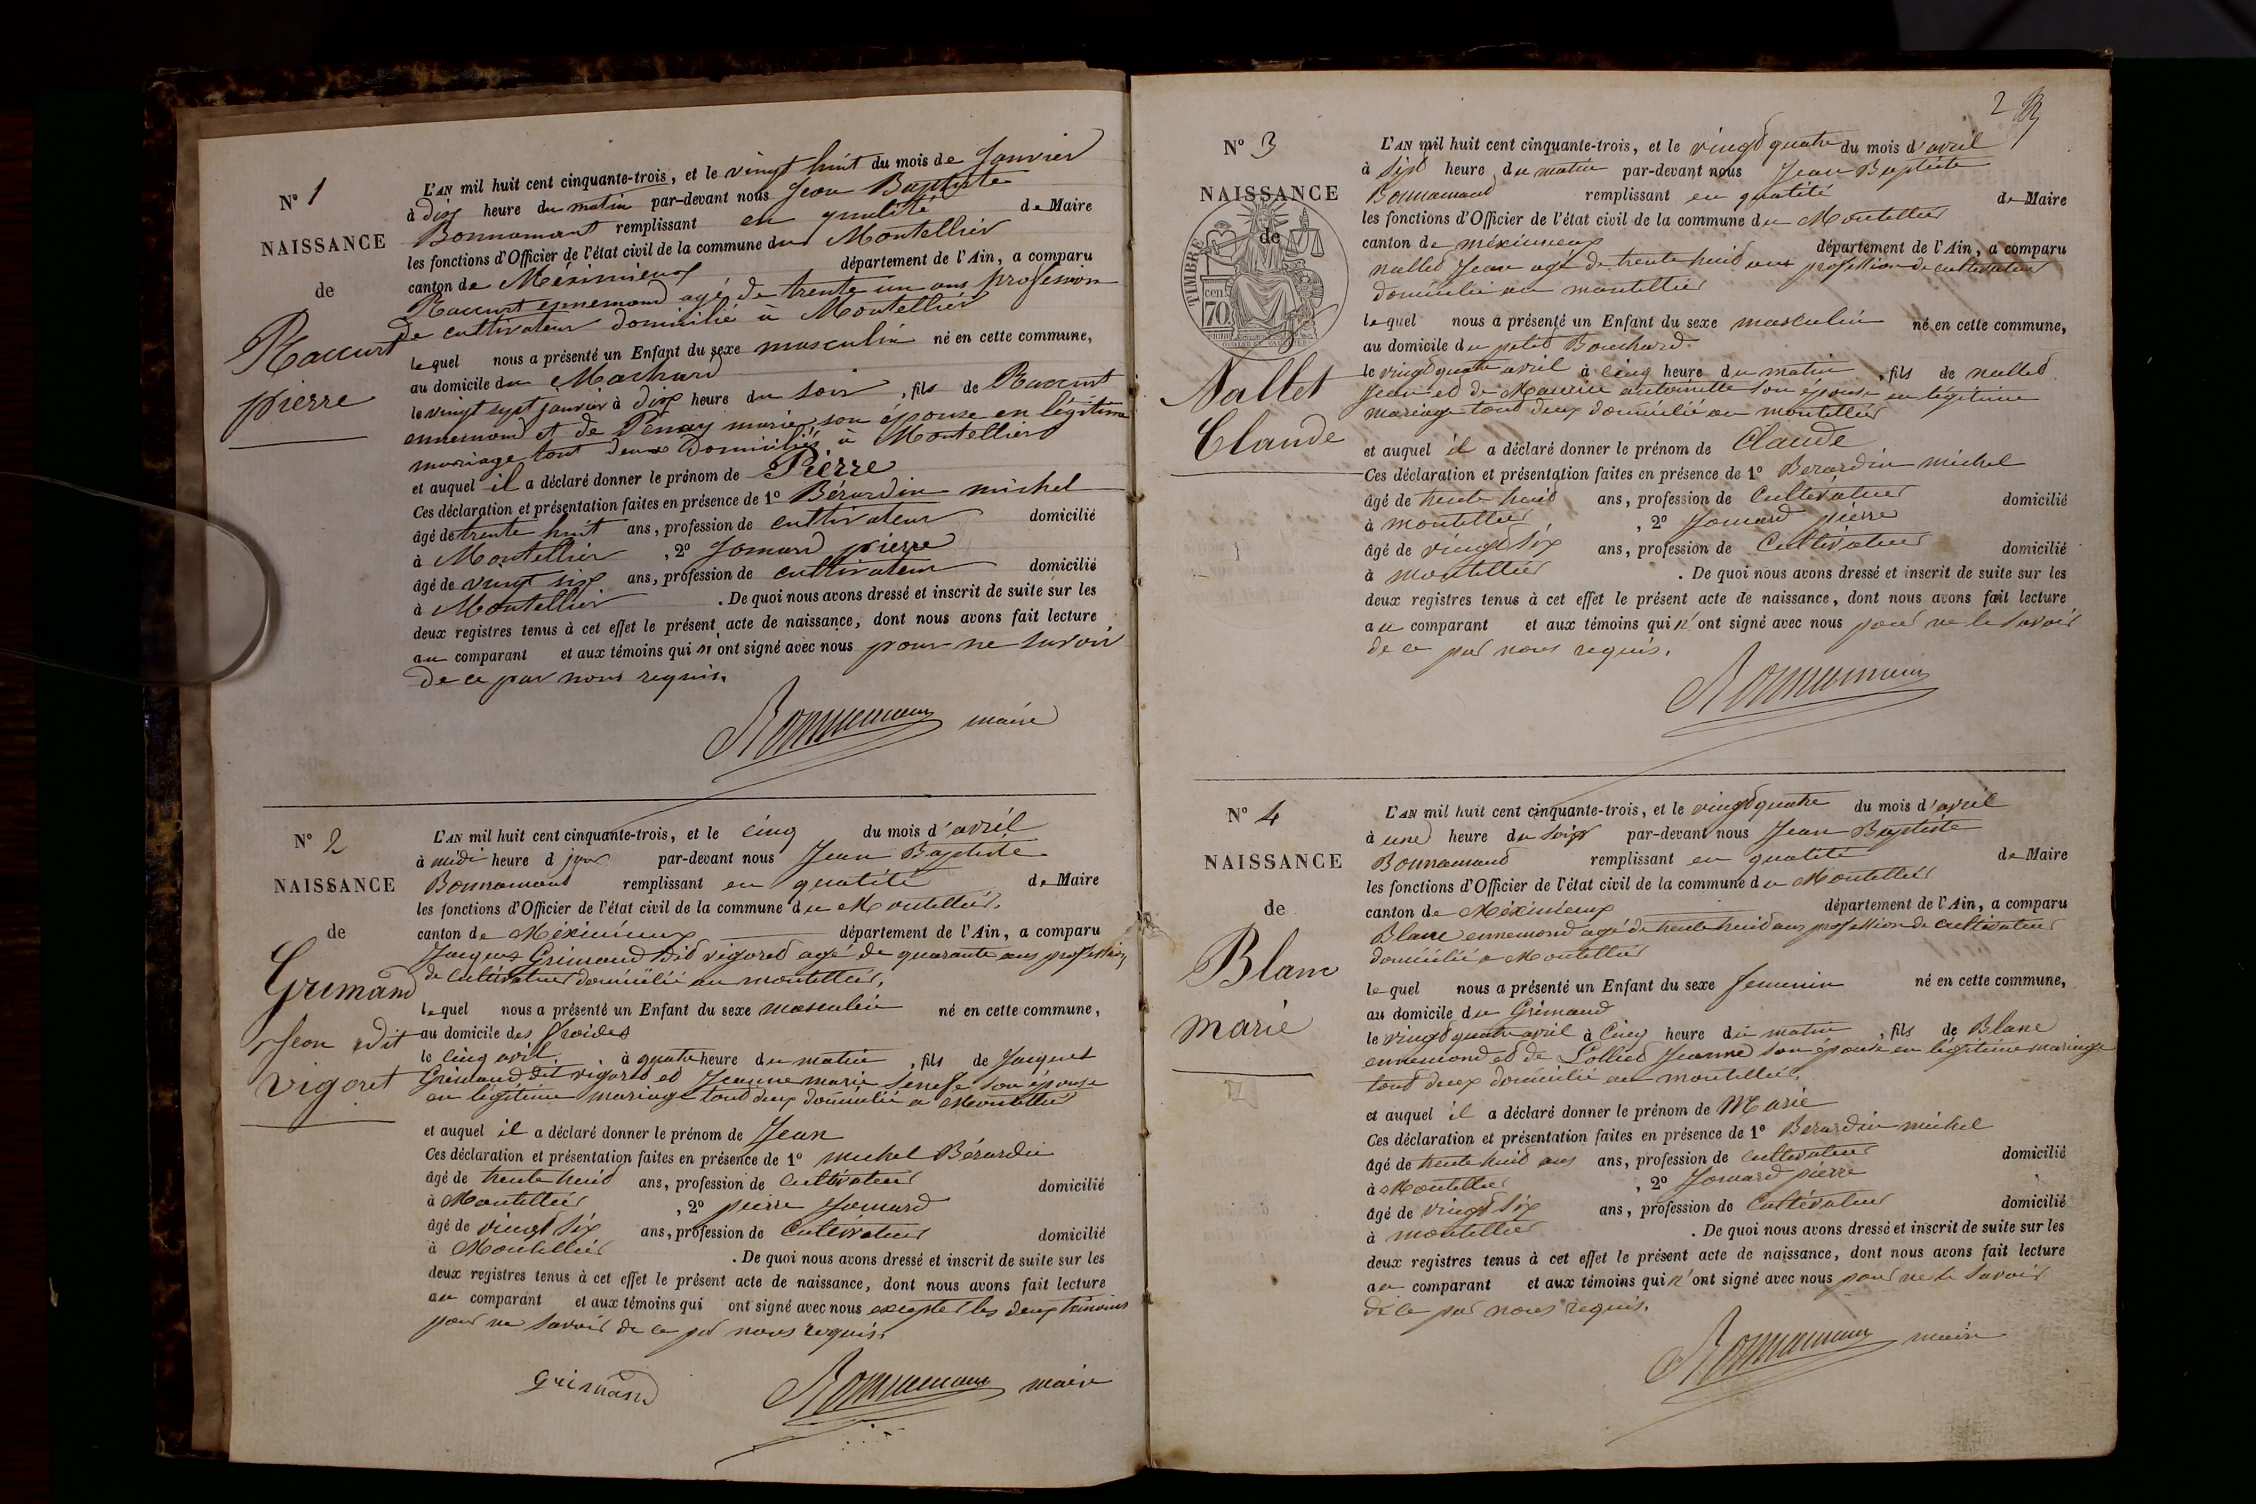 N° 1
NAISSANCE
de
Raccurt
pierre
L'AN mil huit cent cinquante-trois, et le vingt huit du mois de Janvier
à dix heure du matin par-devant nous Jean Baptiste
Bonnamant remplissant en qualité de Maire
les fonctions d'Officier de l'état civil de la commune du Montellier
canton de Méximieux département de l'Ain, a comparu
Raccurt ennemond agé de trente un ans profession
de cultivateur domicilié à Montellier
lequel nous a présenté un Enfant du sexe masculin né en cette commune,
au domicile du Machard
le vingt sept janvier à dix heure du soir, fils de Raccurt
ennemond et de Penay marie son épouse en légitime
mariage tout deux Domiciliés à Montellier
et auquel il a déclaré donner le prénom de Pierre
Ces déclaration et présentation faites en présence de 1° Bérardin michel
âgé de trente huit ans, profession de cultivateur domicilié
à Montellier, 2° Jomard pierre
âgé de vingt six ans, profession de cultivateur domicilié
à Montellier. De quoi nous avons dressé et inscrit de suite sur les
deux registres tenus à cet effet le présent acte de naissance, dont nous avons fait lecture
au comparant et aux témoins qui n'ont signé avec nous pour ne savoir
de ce par nous requis.
Bonnamant maire
N° 2
NAISSANCE
de
Grimand
Jean dit
vigoret
L'AN mil huit cent cinquante-trois, et le cinq du mois d'avril
à midi heure d jour par-devant nous Jean Baptiste
Bonnamand remplissant en qualité de Maire
les fonctions d'Officier de l'état civil de la commune du Montellier.
canton de Méximieux département de l'Ain, a comparu
Jacques Grimand dit vigoret agé de quarante ans profession
de Cultivateur domicilié au montellier,
lequel nous a présenté un Enfant du sexe masculin né en cette commune,
au domicile des froides
le cinq avril à quatre heure du matin, fils de Jacques
Grimand dit vigoret et Jeanne marie son épouse
en légitime mariage tout deux domicilié a Montellier
et auquel il a déclaré donner le prénom de Jean
Ces déclaration et présentation faites en présence de 1° michel Bérardin
âgé de trente huit ans, profession de Cultivateur domicilié
à Montellier, 2° pierre Jomard
âgé de vingt six ans, profession de Cultivateur domicilié
à Montellier. De quoi nous avons dressé et inscrit de suite sur les
deux registres tenus à cet effet le présent acte de naissance, dont nous avons fait lecture
au comparant et aux témoins qui ont signé avec nous excepter les deux témoins
pour ne savoir de ce par nous requis
Grimand Bonnamant maire
2
N° 3
NAISSANCE
de
TIMBRE
70 cen.
Nallet
Claude
L'AN mil huit cent cinquante-trois, et le vingt quatre du mois d'avril
à sept heure du matin par-devant nous Jean Baptiste
Bonnamand remplissant en qualité de Maire
les fonctions d'Officier de l'état civil de la commune du Montellier
canton de méximieux département de l'Ain, a comparu
nallet Jean agé de trente huit ans profession de cultivateur
domicilié au montellier
lequel nous a présenté un Enfant du sexe masculin né en cette commune,
au domicile du petit Bouchard
le vingt quatre avril à cinq heure du matin, fils de nallet
Jean et de Maurice antoinette son épouse en légitime
mariage tout deux domicilié au montellier
et auquel il a déclaré donner le prénom de Claude
Ces déclaration et présentation faites en présence de 1° Berardin michel
âgé de trente huit ans, profession de Cultivateur domicilié
à montellier, 2° Jomard pierre
âgé de vingt six ans, profession de Cultivateur domicilié
à montellier. De quoi nous avons dressé et inscrit de suite sur les
deux registres tenus à cet effet le présent acte de naissance, dont nous avons fait lecture
au comparant et aux témoins qui n'ont signé avec nous pour ne le savoir
de ce par nous requis.
Bonnamant
N° 4
NAISSANCE
de
Blanc
marie
L'AN mil huit cent cinquante-trois, et le vingt quatre du mois d'avril
à une heure du soir par-devant nous Jean Baptiste
Bonnamand remplissant en qualité de Maire
les fonctions d'Officier de l'état civil de la commune du Montellier
canton de Méximieux département de l'Ain, a comparu
Blanc ennemond agé de trente huit ans profession de cultivateur
domicilié a Montellier
lequel nous a présenté un Enfant du sexe femenin né en cette commune,
au domicile du Grimand
le vingt quatre avril à Cinq heure du matin, fils de Blanc
ennemond et de Jeanne son épouse en légitime mariage
tout deux domicilié au montellier,
et auquel il a déclaré donner le prénom de Marie
Ces déclaration et présentation faites en présence de 1° Berardin michel
âgé de trente huit ans ans, profession de Cultivateur domicilié
à Montellier, 2° Jomard pierre
âgé de vingt six ans, profession de Cultivateur domicilié
à montellier. De quoi nous avons dressé et inscrit de suite sur les
deux registres tenus à cet effet le présent acte de naissance, dont nous avons fait lecture
au comparant et aux témoins qui n'ont signé avec nous pour ne le savoir
de ce par nous requis.
Bonnamant maire